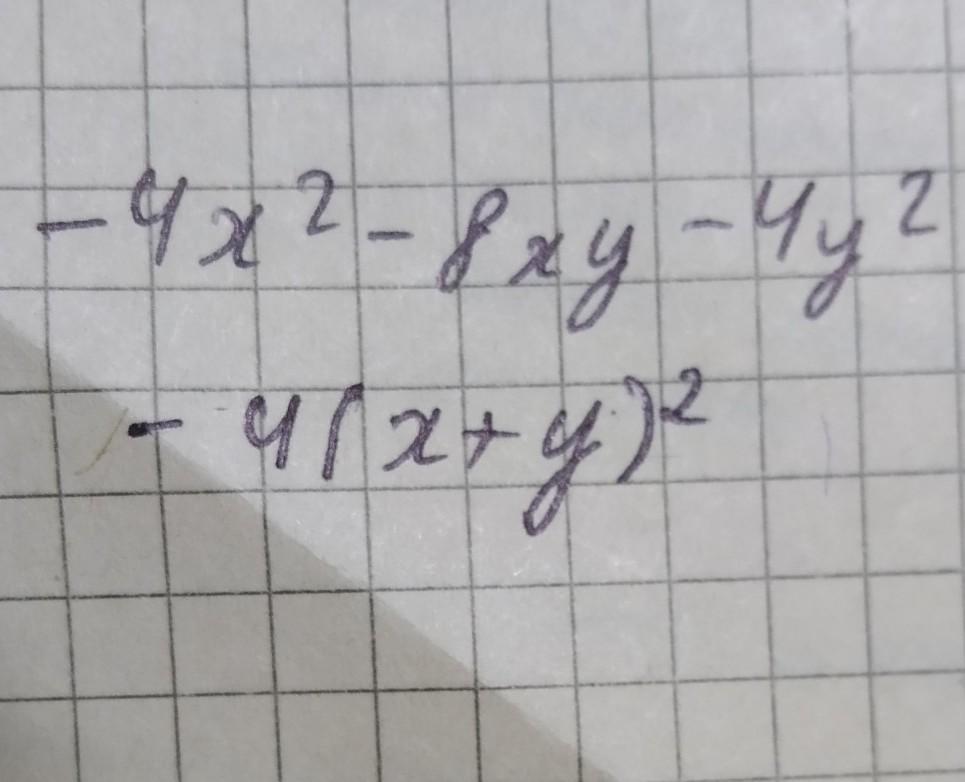 -4x² - 8xy - 4y²
- 4(x+y)²